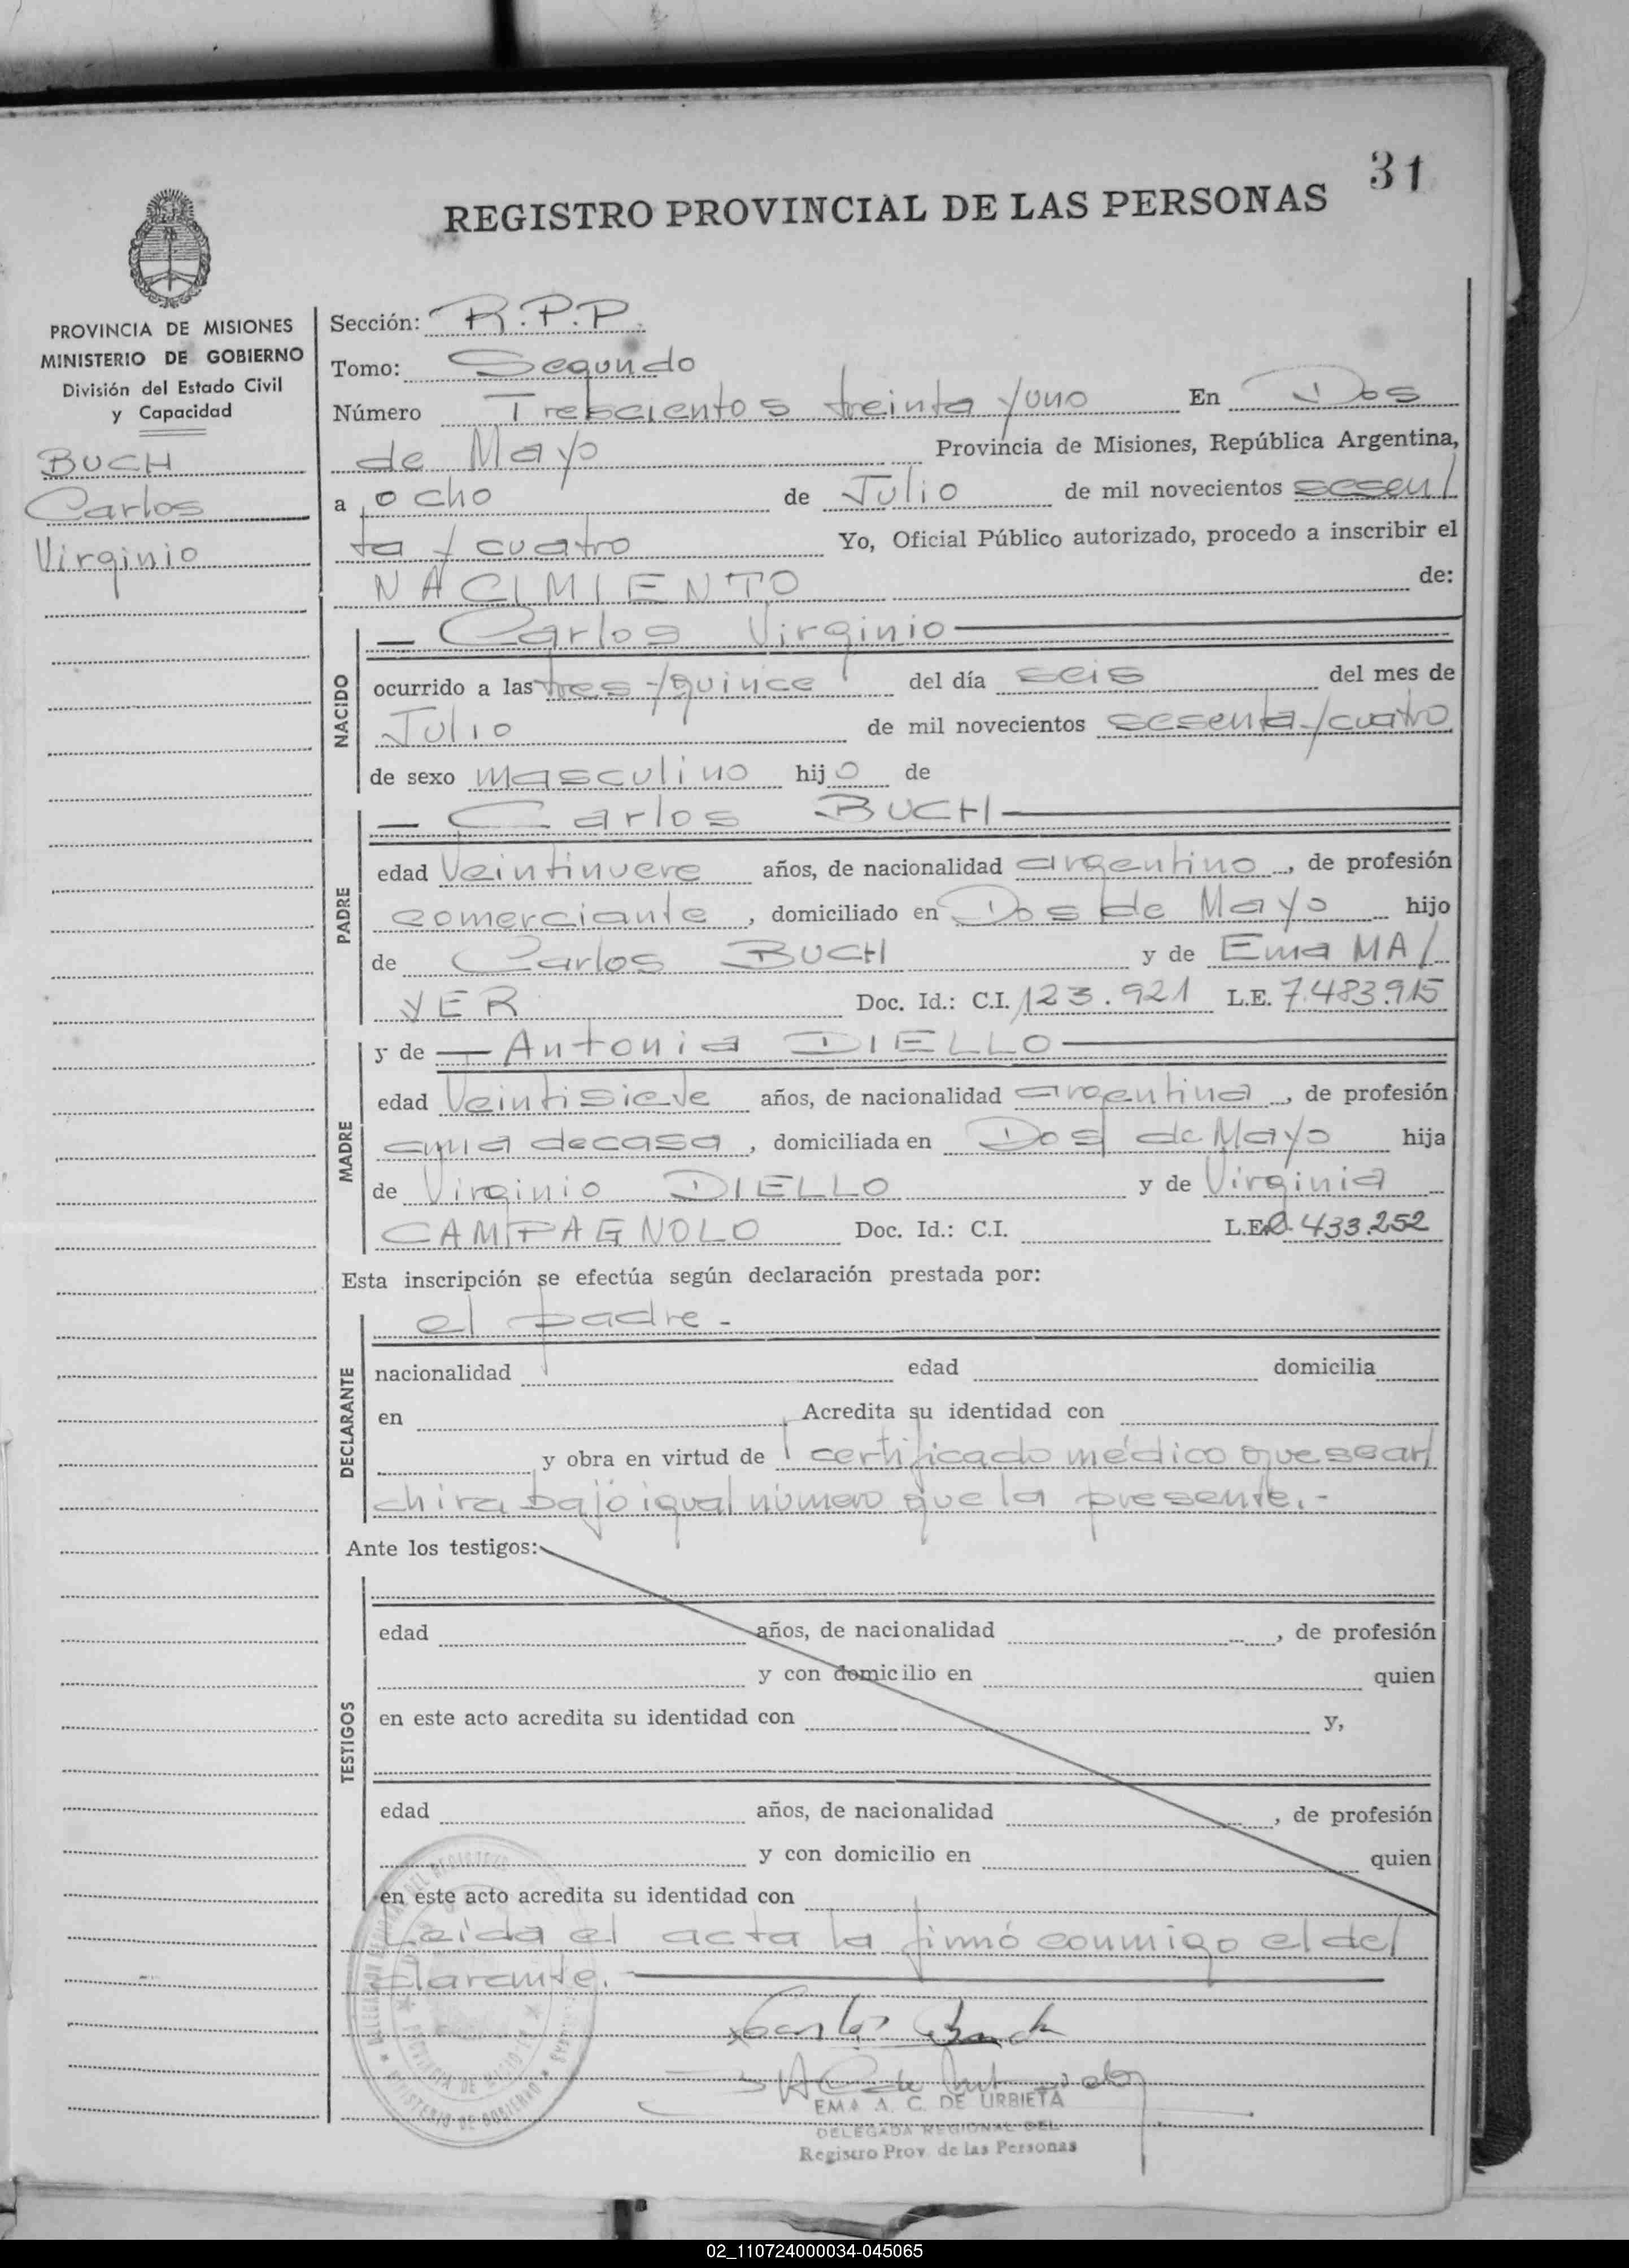 31
REGISTRO PROVINCIAL DE LAS PERSONAS
PROVINCIA DE MISIONES
MINISTERIO DE GOBIERNO
División del Estado Civil
y Capacidad
BUCH
Carlos
Virginio
Sección: R.P.P.
Tomo: Segundo
Número Trescientos treinta y uno En Dos
de Mayo Provincia de Misiones, República Argentina,
a ocho de Julio de mil novecientos sesen/
ta y cuatro Yo, Oficial Público autorizado, procedo a inscribir el
NACIMIENTO de:
NACIDO
— Carlos Virginio —
ocurrido a las tres y quince del día seis del mes de
Julio de mil novecientos sesenta y cuatro
de sexo masculino hijo de
PADRE
— Carlos BUCH —
edad Veintinueve años, de nacionalidad argentino, de profesión
comerciante, domiciliado en Dos de Mayo hijo
de Carlos BUCH y de Ema MA/
YER Doc. Id.: C.I. 123.921 L.E. 7.483.915
MADRE
y de — Antonia DIELLO —
edad Veintisiete años, de nacionalidad argentina, de profesión
ama de casa, domiciliada en Dos de Mayo hija
de Virginio DIELLO y de Virginia
CAMPAGNOLO Doc. Id.: C.I. L.E. 433.252
Esta inscripción se efectúa según declaración prestada por:
DECLARANTE
el padre.-
nacionalidad edad domicilia
en Acredita su identidad con
y obra en virtud de certificado médico que se ar/
chiva bajo igual número que la presente.-
Ante los testigos:
TESTIGOS
edad años, de nacionalidad , de profesión
y con domicilio en quien
en este acto acredita su identidad con y,
edad años, de nacionalidad , de profesión
y con domicilio en quien
en este acto acredita su identidad con
Leída el acta la firmó conmigo el de/
clarante.
Carlos Buch
EMA A. C. DE URBIETA
DELEGADA REGIONAL DEL
Registro Prov. de las Personas
PROVINCIA DE MISIONES
MINISTERIO DE GOBIERNO
02_110724000034-045065